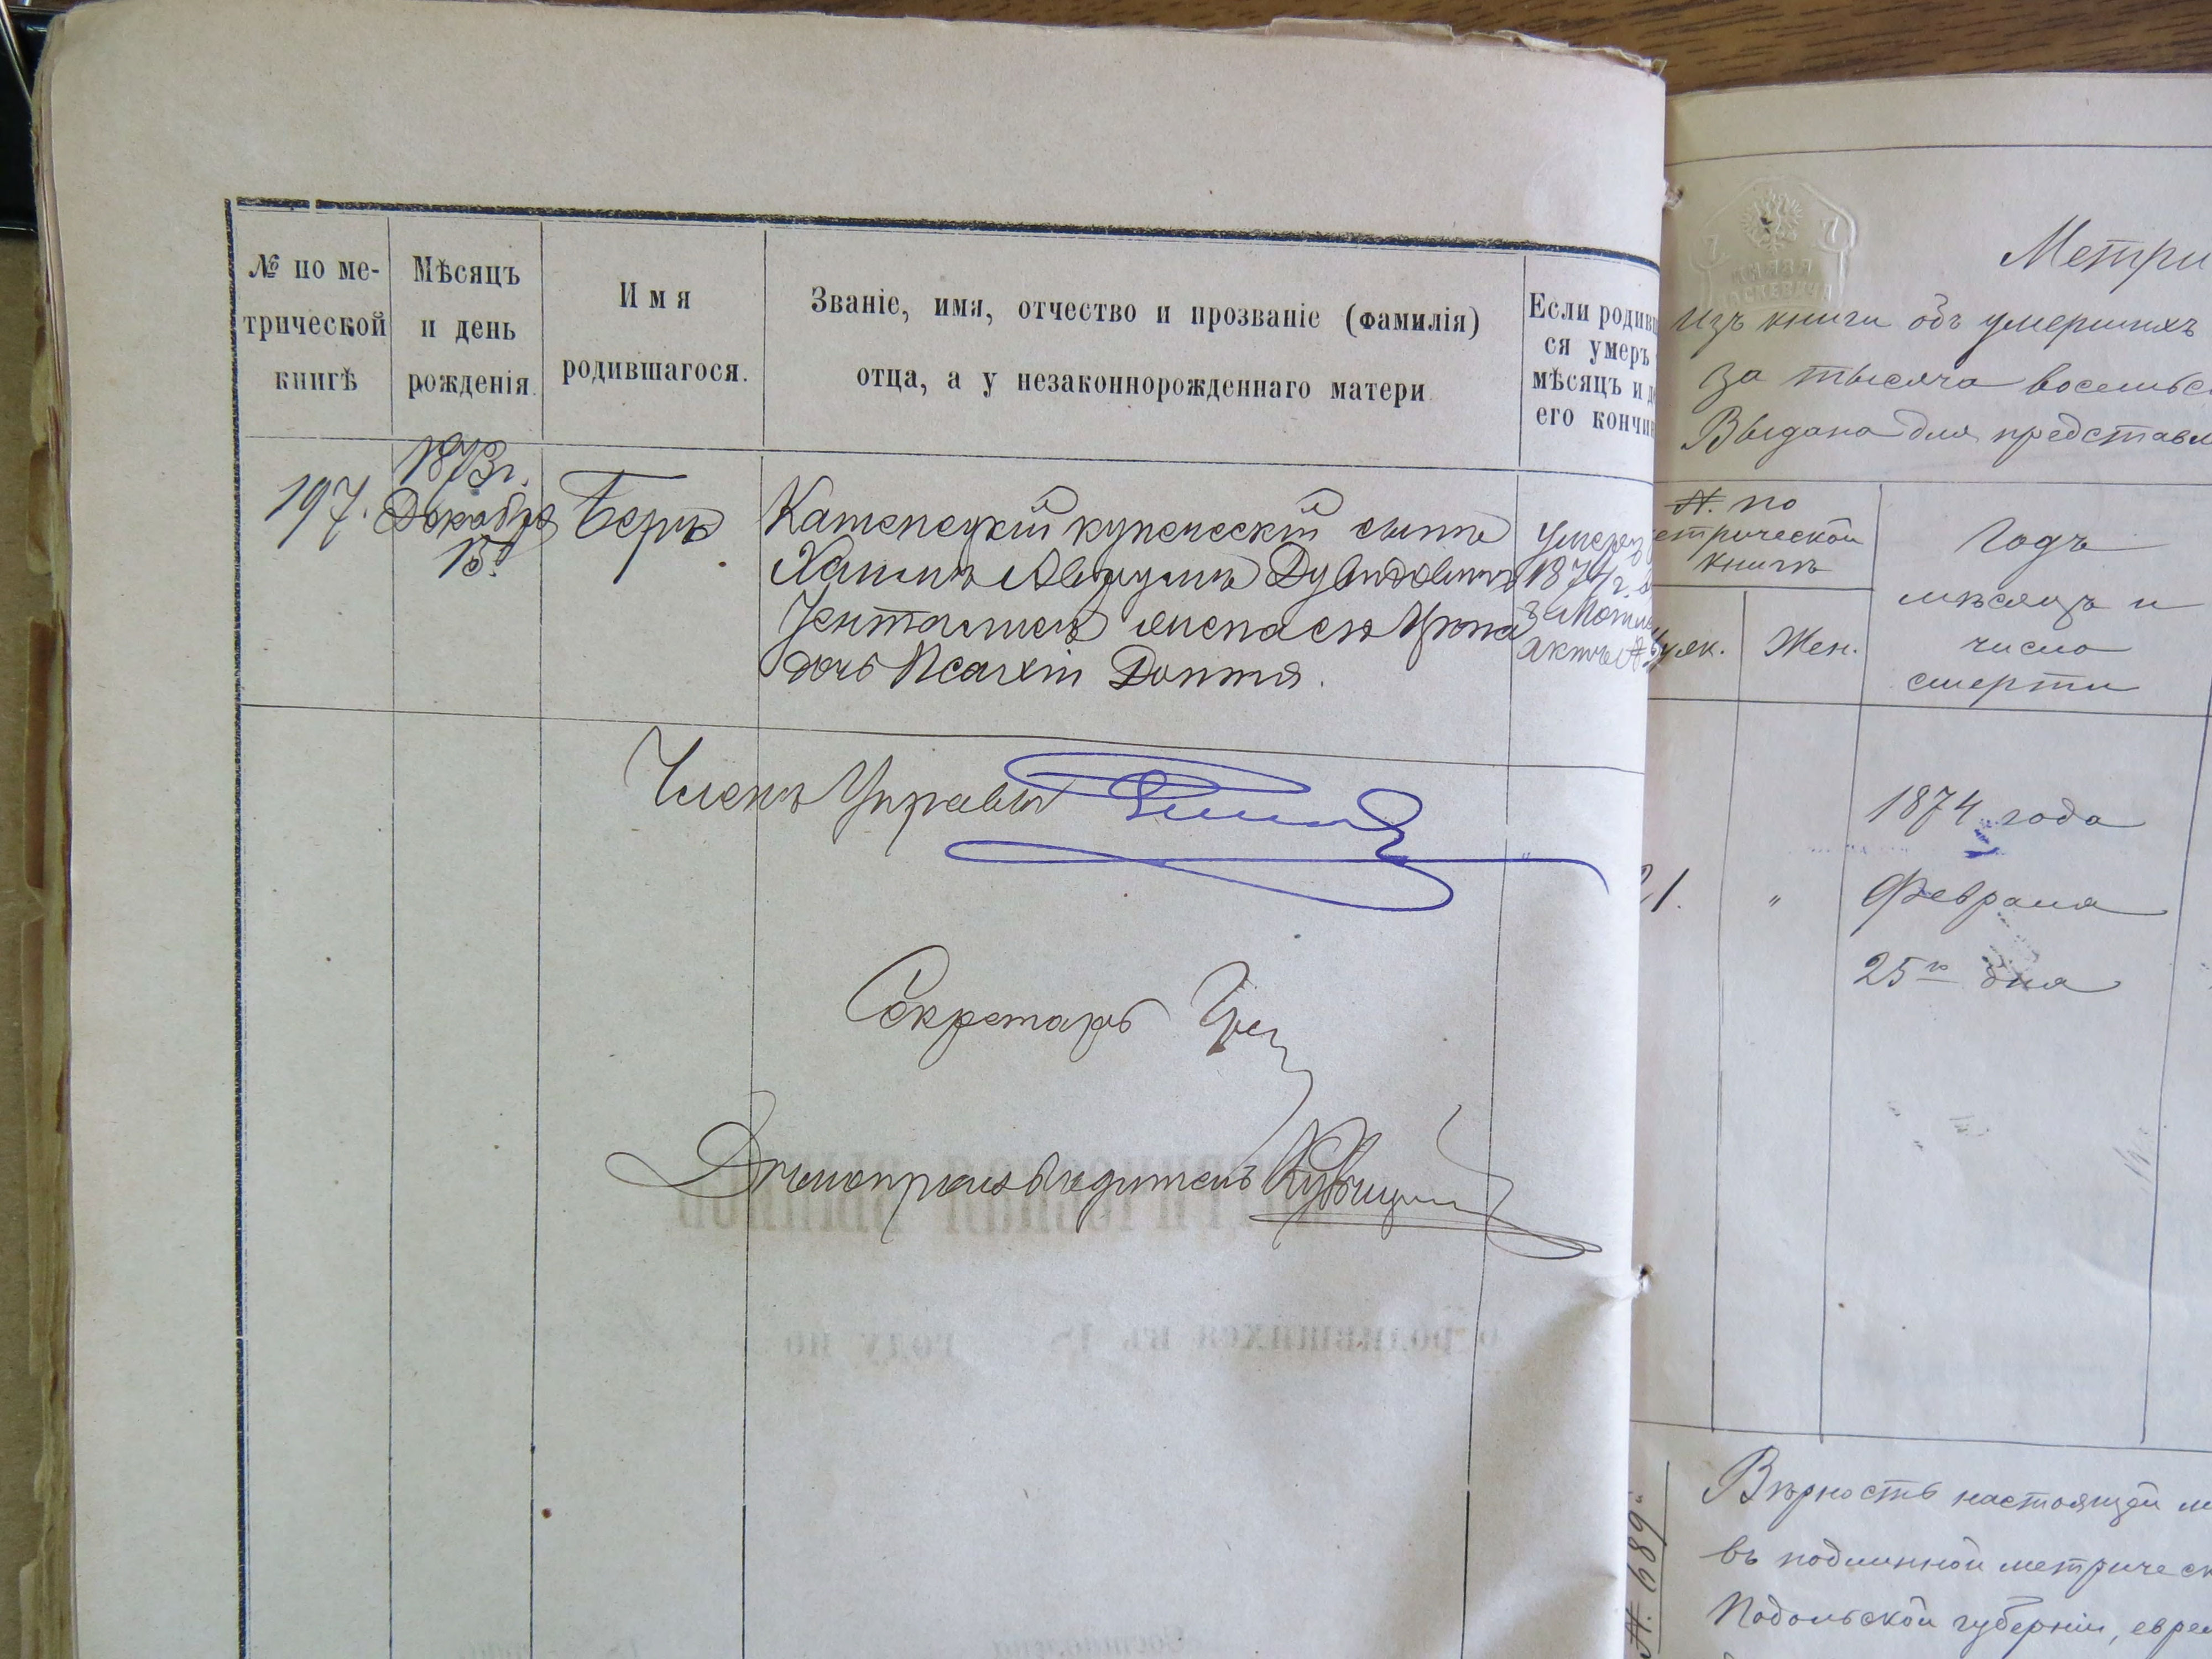 № по ме-
трической
книгѣ
Мѣсяцъ
и день
рожденія.
Имя
родившагося.
Званіе, имя, отчество и прозваніе (фамилія)
отца, а у незаконнорожденнаго матери
Если родивш
ся умеръ
мѣсяцъ и д
его кончин
197.
1873 г.
Декабря
15.
Беръ
Каменецкій купеческій сынъ
Хаимъ Аврумъ Дувидовичъ
жена его
дочь
Умеръ
1874 г.
Членъ Управы
Секретарь
Дѣлопроизводитель
КНЯЗЯ
Метри
Изъ книги объ умершихъ
За тысяча восемьс
Выдана для представл
№. по
етрической
книгѣ
Годъ
мѣсяцъ и
число
смерти
уж.
Жен.
1874 года
21.
"
Февраля
25го дня
№. 689
Вѣрность настоящей м
въ подлинной метрическ
Подольской губерніи, евре